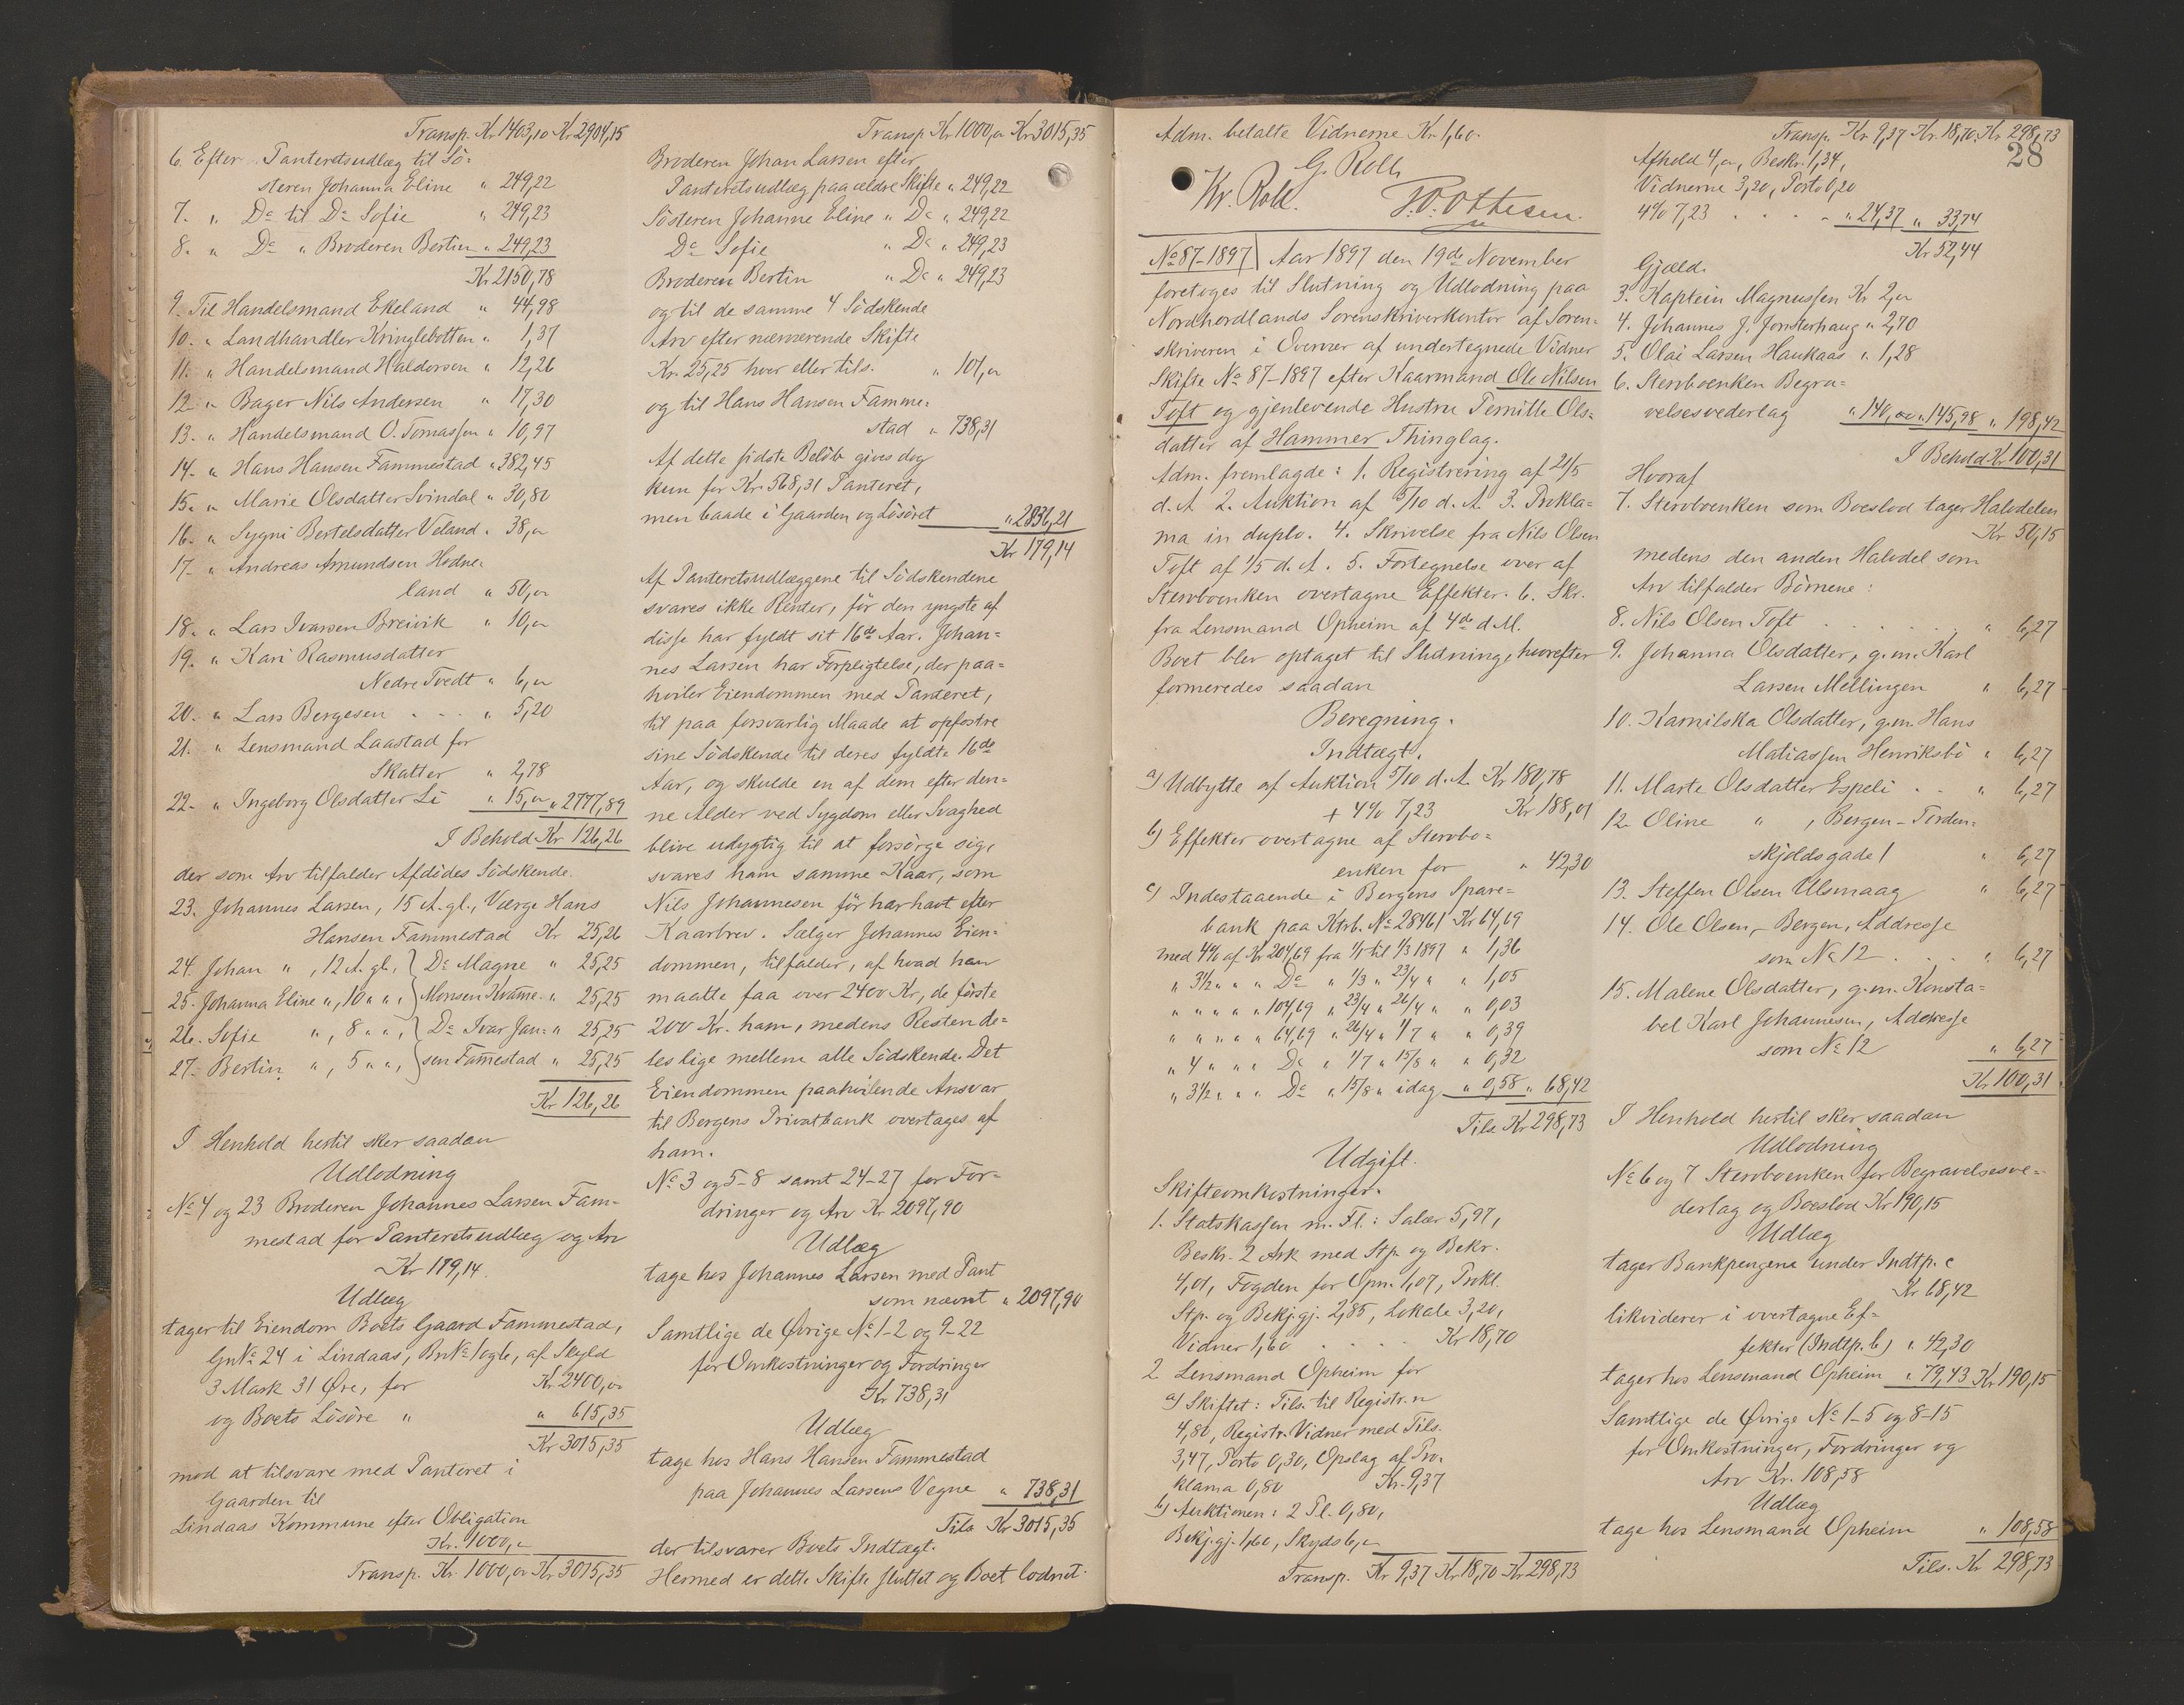 Transp. Kr 1403,10 Kr 2904,15
6. Efter Panteretsudlæg til Sö=
steren Johanna Eline " 249,22
7. " Do til Do Sofie " 249,23
8. " Do " Broderen Bertin " 249,23
Kr 2150,78
9. Til Handelsmand Ekeland " 44,98
10. " Landhandler Kringlebotten " 1,37
11. " Handelsmand Haldorsen " 12,26
12. " Bager Nils Andersen " 17,30
13. " Handelsmand O. Tomassen " 10,97
14. " Hans Hansen Fammestad " 382,45
15. " Marie Olsdatter Svindal " 30,80
16. " Sygni Bertelsdatter Veland " 38,"
17. " Andreas Amundsen Hodne=
land " 50,"
18. " Lars Ivarsen Breivik " 10,"
19. " Kari Rasmusdatter
Nedre Tvedt " 6,"
20. " Lars Bergesen . - . " 5,20
21. " Lensmand Laastad for
Skatter " 2,78
22. " Ingeborg Olsdatter Li " 15," " 2777,89
I Behold Kr 126,26
der som Arv tilfalder Afdödes Södskende.
23. Johannes Larsen, 15 A. gl., Værge Hans
Hansen Fammestad Kr 25,26
24. Johan " , 12 A. gl., } Do Magne " 25,25
25. Johanna Eline ", 10 " ", } Monsen Kvamme. " 25,25
26. Sofie " , 8 " ", } Do Ivar Jan= " 25,25
27. Bertin " , 5 " ", } sen Fammestad " 25,25
Kr 126,26
I Henhold hertil sker saadan
Udlodning
No 4 og 23 Broderen Johannes Larsen Fam=
mestad for Panteretsudlæg og Arv
Kr 179,14.
Udlæg
tager til Eiendom Boets Gaard Fammestad,
GnNo 24 i Lindaas, BnNo 1 og 6, af Skyld
3 Mark 31 Öre, for Kr 2400,"
og Boets Lösöre " " 615,35
Kr 3015,35
mod at tilsvare med Panteret i
Gaarden til
Lindaas Kommune efter Obligation
Kr. 1000,"
Transp. Kr. 1000," Kr 3015,35
Transp Kr 1000," Kr 3015,35
Broderen Johan Larsen efter
Panteretsudlæg paa ældre Skifte " 249,22
Sösteren Johanne Eline " Do " 249,22
Do Sofie " Do " 249,23
Broderen Bertin " Do " 249,23
og til de samme 4 Södskende
Arv efter nærværende Skifte
Kr. 25,25 hver eller tils. " 101,"
og til Hans Hansen Famme=
stad " 738,31
Af dette sidste Belöb gives dog
kun for Kr. 568,31 Panteret,
men baade i Gaarden og Lösöret " 2836,21
Kr 179,14
Af Panteretsudlæggene til Södskendene
svares ikke Renter, för den yngste af
disse har fyldt sit 16de Aar. Johan=
nes Larsen har Forpligtelse, der paa=
hviler Eiendommen med Panteret,
til paa forsvarlig Maade at opfostre
sine Södskende til deres fyldte 16de
Aar, og skulde en af dem efter den=
ne Alder ved Sygdom eller Svaghed
blive udygtig til at forsörge sig,
svares ham samme Kaar, som
Nils Johannesen för har havt efter
Kaarbrev. Sælger Johannes Eien=
dommen, tilfalder, af hvad han
maatte faa over 2400 Kr, de förste
200 Kr. ham, medens Resten de=
les lige mellem alle Södskende. Det
Eiendommen paahvilende Ansvar
til Bergens Privatbank overtages af
ham.
No 3 og 5-8 samt 24-27 for For=
dringer og Arv Kr 2097,90
Udlæg
tage hos Johannes Larsen med Pant
som nævnt " 2097,90
Samtlige de Övrige No 1-2 og 9-22
for Omkostninger og Fordringer
Kr 738,31
Udlæg
tage hos Hans Hansen Fammestad
paa Johannes Larsens Vegne " 738,31
Tils. Kr 3015,35
der tilsvarer Boets Indtægt.
Hermed er dette Skifte sluttet og Boet lodnet.
Adm. betalte Vidnerne Kr. 1,60.
G. Roll,
Kr. Roll. P. O. Ottesen.
No 87-1897 Aar 1897 den 19de November
foretoges til Slutning og Udlodning paa
Nordhordlands Sorenskriverkontor af Soren=
skriveren i Overvær af undertegnede Vidner
Skifte No 87-1897 efter Kaarmand Ole Nilsen
Toft og gjenlevende Hustru Pernille Ols=
datter af Hammer Thinglag.
Adm. fremlagde: 1. Registrering af 21/5
d. A. 2. Auktion af 5/10 d. A. 3. Prokla=
ma in duplo. 4. Skrivelse fra Nils Olsen
Toft af 1/5 d. A. 5. Fortegnelse over af
Stervboenken overtagne Effekter. 6. Skr.
fra Lensmand Opheim af 4de d M.
Boet blev optaget til Slutning, hvorefter
formeredes saadan
Beregning.
Indtægt.
a) Udbytte af Auktion 5/10 d. A. Kr 180,78
+ 4% 7,23 Kr 188,01
b) Effekter overtagne af Stervbo=
enken for " 42,30
c) Indestaaende i Bergens Spare=
bank paa Ktrb. No 28461 Kr 64,69
med 4% af Kr 204,69 fra 1/1 til 1/3 1897 " 1,36
" 3 1/2 " " Do " 1/3 " 23/4 " " 1,05
" " " " 104,69 " 23/4 " 26/4 " " 0,03
" " " " 64,69 " 26/4 " 1/7 " " 0,39
" 4 " " Do " 1/7 " 15/8 " " 0,32
" 3 1/2 " " Do " 15/8 " idag " 0,58 " 68,42
Tils. Kr 298,73
Udgift.
Skifteomkostninger.
1. Statskassen m. Fl.: Salær 5,97,
Beskr. 2 Ark med Stp. og Bekr.
4,01, Fogden for Opn. 1,07, Prokl.
Stp. og Bekj.gj. 2,85, Lokale 3,20,
Vidner 1,60 . . . Kr 18,70
2. Lensmand Opheim for
a) Skiftet: Tils. til Registr.n
4,80, Registr. Vidner med Tils.
3,47, Porto 0,30, Opslag af Pro=
klama 0,80 Kr. 9,37
b) Auktionen: 2 Pl. 0,80,
Bekj.gj. 1,60, Skyds 6,"
Transp. Kr 9,37 Kr 18,70 Kr 298,73
Transp. Kr 9,37 Kr. 18,70 Kr 298,73
28
Afhold 4,", Beskr. 1,34,
Vidnerne 3,20, Porto 0,20
4% 7,23 . . . " 24,37 " 33,74
Kr 52,44
Gjæld.
3. Kaptein Magnussen Kr 2,"
4. Johannes J. " 2,70
5. Olai Larsen Haukaas " 1,28
6. Stervboenken Begra=
velsesvederlag " 140," " 145,98 " 198,42
I Behold Kr 100,31
Hvoraf
7. Stervboenken som Boeslod tager Halvdelen
Kr 50,15
medens den anden Halvdel som
Arv tilfalder Börnene:
8. Nils Olsen Toft . . . " 6,27
9. Johanna Olsdatter, g.m. Karl
Larsen Mellingen " 6,27
10. Kamilska Olsdatter, g.m. Hans
Matiassen Henriksbö " 6,27
11. Marte Olsdatter Espeli . . " 6,27
12. Oline " , Bergen - Torden=
skjoldsgade 1 " 6,27
13. Steffen Olsen Ulsmaag " 6,27
14. Ole Olsen, - Bergen, Addresse
som No 12 . . . " 6,27
15. Malene Olsdatter, g.m. Konsta=
bel Karl Johannesen, Adresse
som No 12 " 6,27
Kr 100,31
I Henhold hertil sker saadan
Udlodning
No 6 og 7 Stervboenken for Begravelsesve=
derlag og Boeslod Kr 190,15
Udlæg
tager Bankpengene under Indtp. c
Kr 68,42
likviderer i overtagne Ef=
fekter (Indtp. b) " 42,30
tager hos Lensmand Opheim " 79,43 Kr 190,15
Samtlige de Övrige No 1-5 og 8-15
for Omkostninger, Fordringer og
Arv Kr. 108,58
Udlæg
tage hos Lensmand Opheim " 108,58
Tils. Kr 298,73